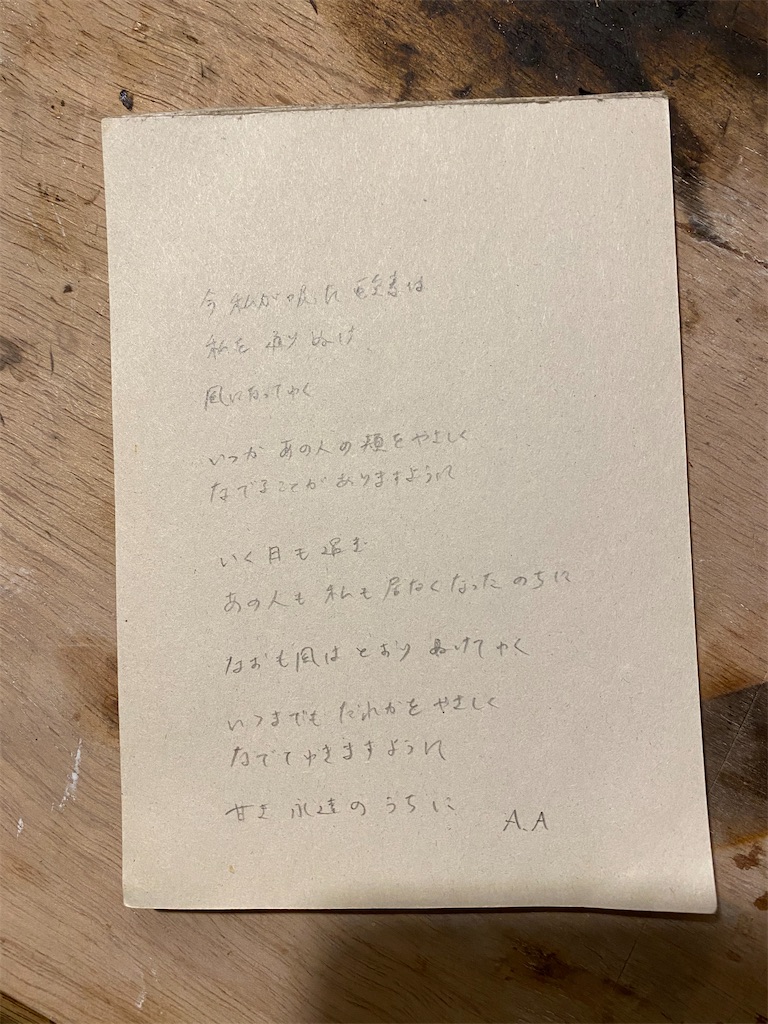 今 私が吸った 空気は
私を 通り ぬけ
風になってゆく
いつか あの人の 頬を やさしく
なでることが ありますように
いく日も 過ぎ
あの人も 私も 居なくなった のちに
なおも 風は とおり ぬけて ゆく
いつまでも だれかを やさしく
なでて ゆきますように
甘き 永遠の うちに
A.A